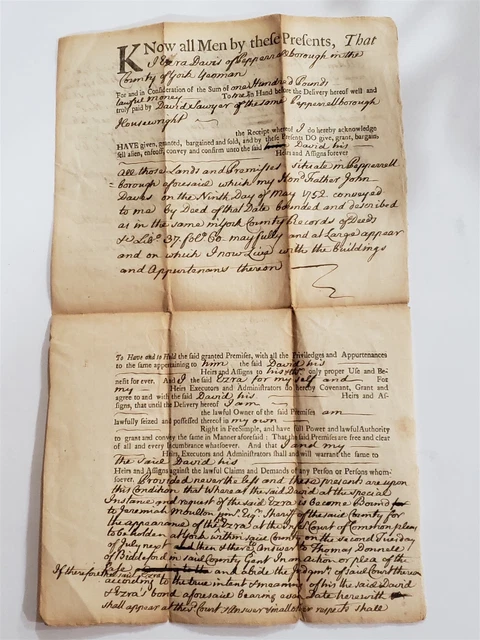 KNow all Men by these Presents, That
I Ezra Davis of Pepperrellborough in the
County of York Yeoman
For and in Consideration of the Sum of one Hundred Pounds
lawful money To me in Hand before the Delivery hereof well and
truly paid by David Sawyer of the same Pepperrellborough
Housewright
the Receipt whereof I do hereby acknowledge
HAVE given, granted, bargained and sold, and by these Presents DO give, grant, bargain,
sell alien, enfeoff, convey and confirm unto the said David his
Heirs and Assigns forever
All those Lands and Premisses situate in Pepperrell
borough aforesaid which my Honᵈ Father John
Davis on the Ninth Day of May 1752 conveyed
to me by Deed of that Date bounded and described
as in the same in York County Records of Deeds
Libº 37. folº 60. may fully and at Large appear
and on which I now Live with the Buildings
and Appurtenans thereon
To Have and to Hold the said granted Premises, with all the Priviledges and Appurtenances
to the same appertaining to him the said David his
Heirs and Assigns to his only proper Use and Be-
nefit for ever. And I the said Ezra for my self and For
my Heirs Executors and Administrators do hereby Covenant, Grant and
agree to and with the said David his Heirs and As-
signs, that until the Delivery hereof I am
the lawful Owner of the said Premises am
lawfully seized and possessed thereof in my own
Right in FeeSimple, and have full Power and lawful Authority
to grant and convey the same in Manner aforesaid: That the said Premises are free and clear
of all and every Incumbrance whatsoever. And that I and my
Heirs, Executors and Administrators shall and will warrant the same to
the said David his
Heirs and Assigns against the lawful Claims and Demands of any Person or Persons whom-
soever. Provided never the less and these presents are upon
this Condition that Whereas the said David at the special
Instance and request of the said Ezra is Become Bound
to Jeremiah Moulton junʳ Esqʳ Sheriff of the said County for
the appearance of the sᵈ Ezra at the Infʳ Court of Common pleas
to be holden at York within said County on the second Tuesday
of July next then & there to Answer to Thomas Donnell
of Biddeford in said County Gent In an action of plea of the
Case and abide the Judgmᵗ of said Court thereon
If therefore the said Ezra
according to the true intent & meaning of his the said David
& Ezra's bond aforesaid bearing even Date herewith
shall appear at the sᵈ Court & Answer & in all other respects shall